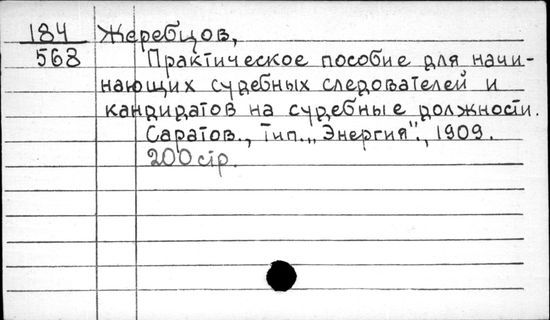 184 Жеребцов,
568 Практическое пособие для начи-
нающих судебных следователей и
кандидатов на судебные должности.
Саратов., Тип. „Энергия"., 1909.
200 стр.